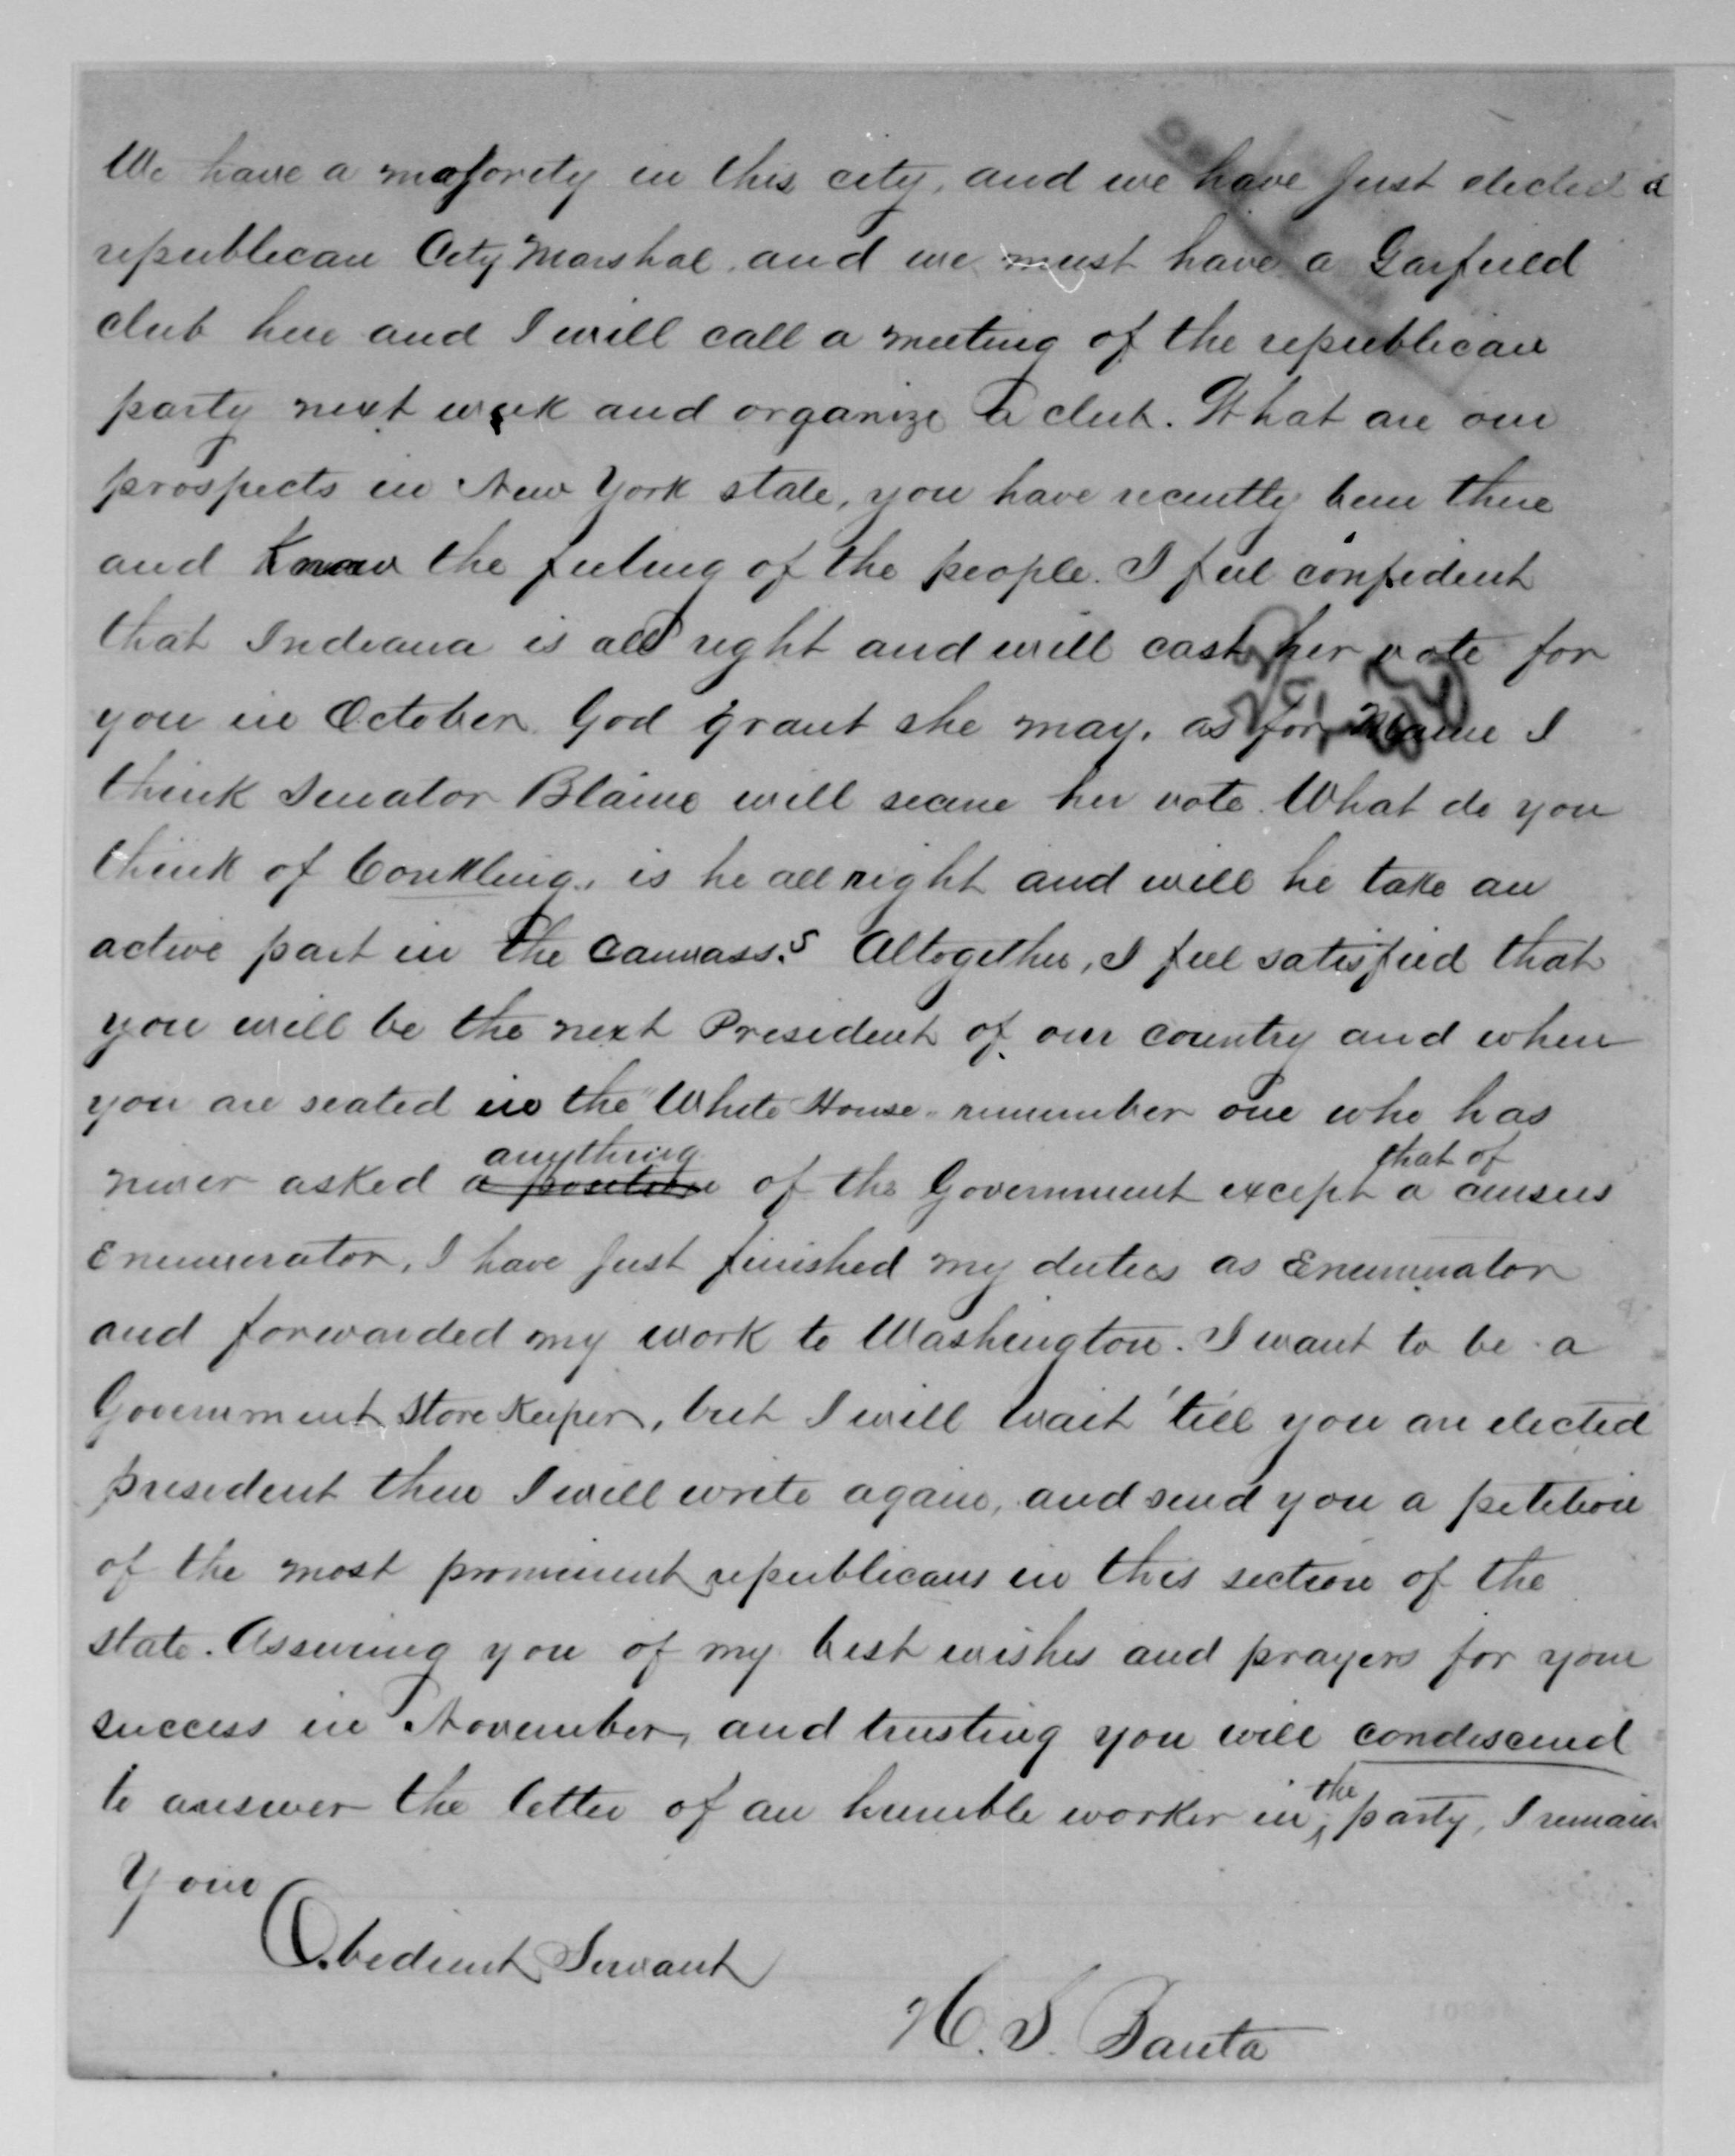 We have a majority in this city, and we have just elected a
republican City Marshal, and we must have a Garfield
club here and I will call a meeting of the republican
party next week and organize a club. What are our
prospects in New York state, you have recently been there
and know the feeling of the people. I feel confident
that Indiana is all right and will cast her vote for
you in October. God grant she may, as for Maine I
think Senator Blaine will secure her vote. What do you
think of Conkling, is he all right and will he take an
active part in the canvass? Altogether, I feel satisfied that
you will be the next President of our country and when
you are seated in the "White House" remember one who has
anything that of
never asked a position of the Government except a census
Enumerator, I have just finished my duties as Enumerator
and forwarded my work to Washington. I want to be a
Government Store Keeper, but I will wait 'till you are elected
president then I will write again, and send you a petition
of the most prominent republicans in this section of the
state. Assuring you of my best wishes and prayers for your
success in November, and trusting you will condescend
the
to answer the letter of an humble worker in party, I remain
Your
Obedient Servant
H. S.